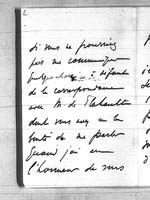 2
si vous ne pourriez
pas me communiquer
quelque chose
de la correspondance
avec M. de Flahault
dont vous avez eu la
bonté de me parler
quand j'ai eu
l'honneur de vous